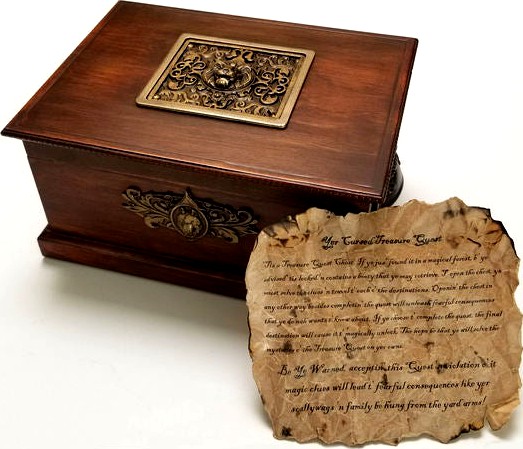 Yer Cursed Treasure Quest
Tis a Treasure Quest Chest. If ye jus' found it in a magical forest, b' ye
advised 'tis locked 'n contains a booty that ye may retrieve. T' open the chest, ye
must solve the clues 'n travel t' each o' the destinations. Openin' the chest in
any other way besides completin' the quest will unleash fearful consequences
that ye do not wants t' know about. If ye choose t' complete the quest, the final
destination will cause it t' magically unlock. The hope be that ye will solve the
mysteries o' the Treasure Quest on yer own.
Be Ye Warned, acceptin' this Quest 'n violation o' it
magic clues will lead t' fearful consequences like yer
scallywags 'n family be hung from the yard arms!